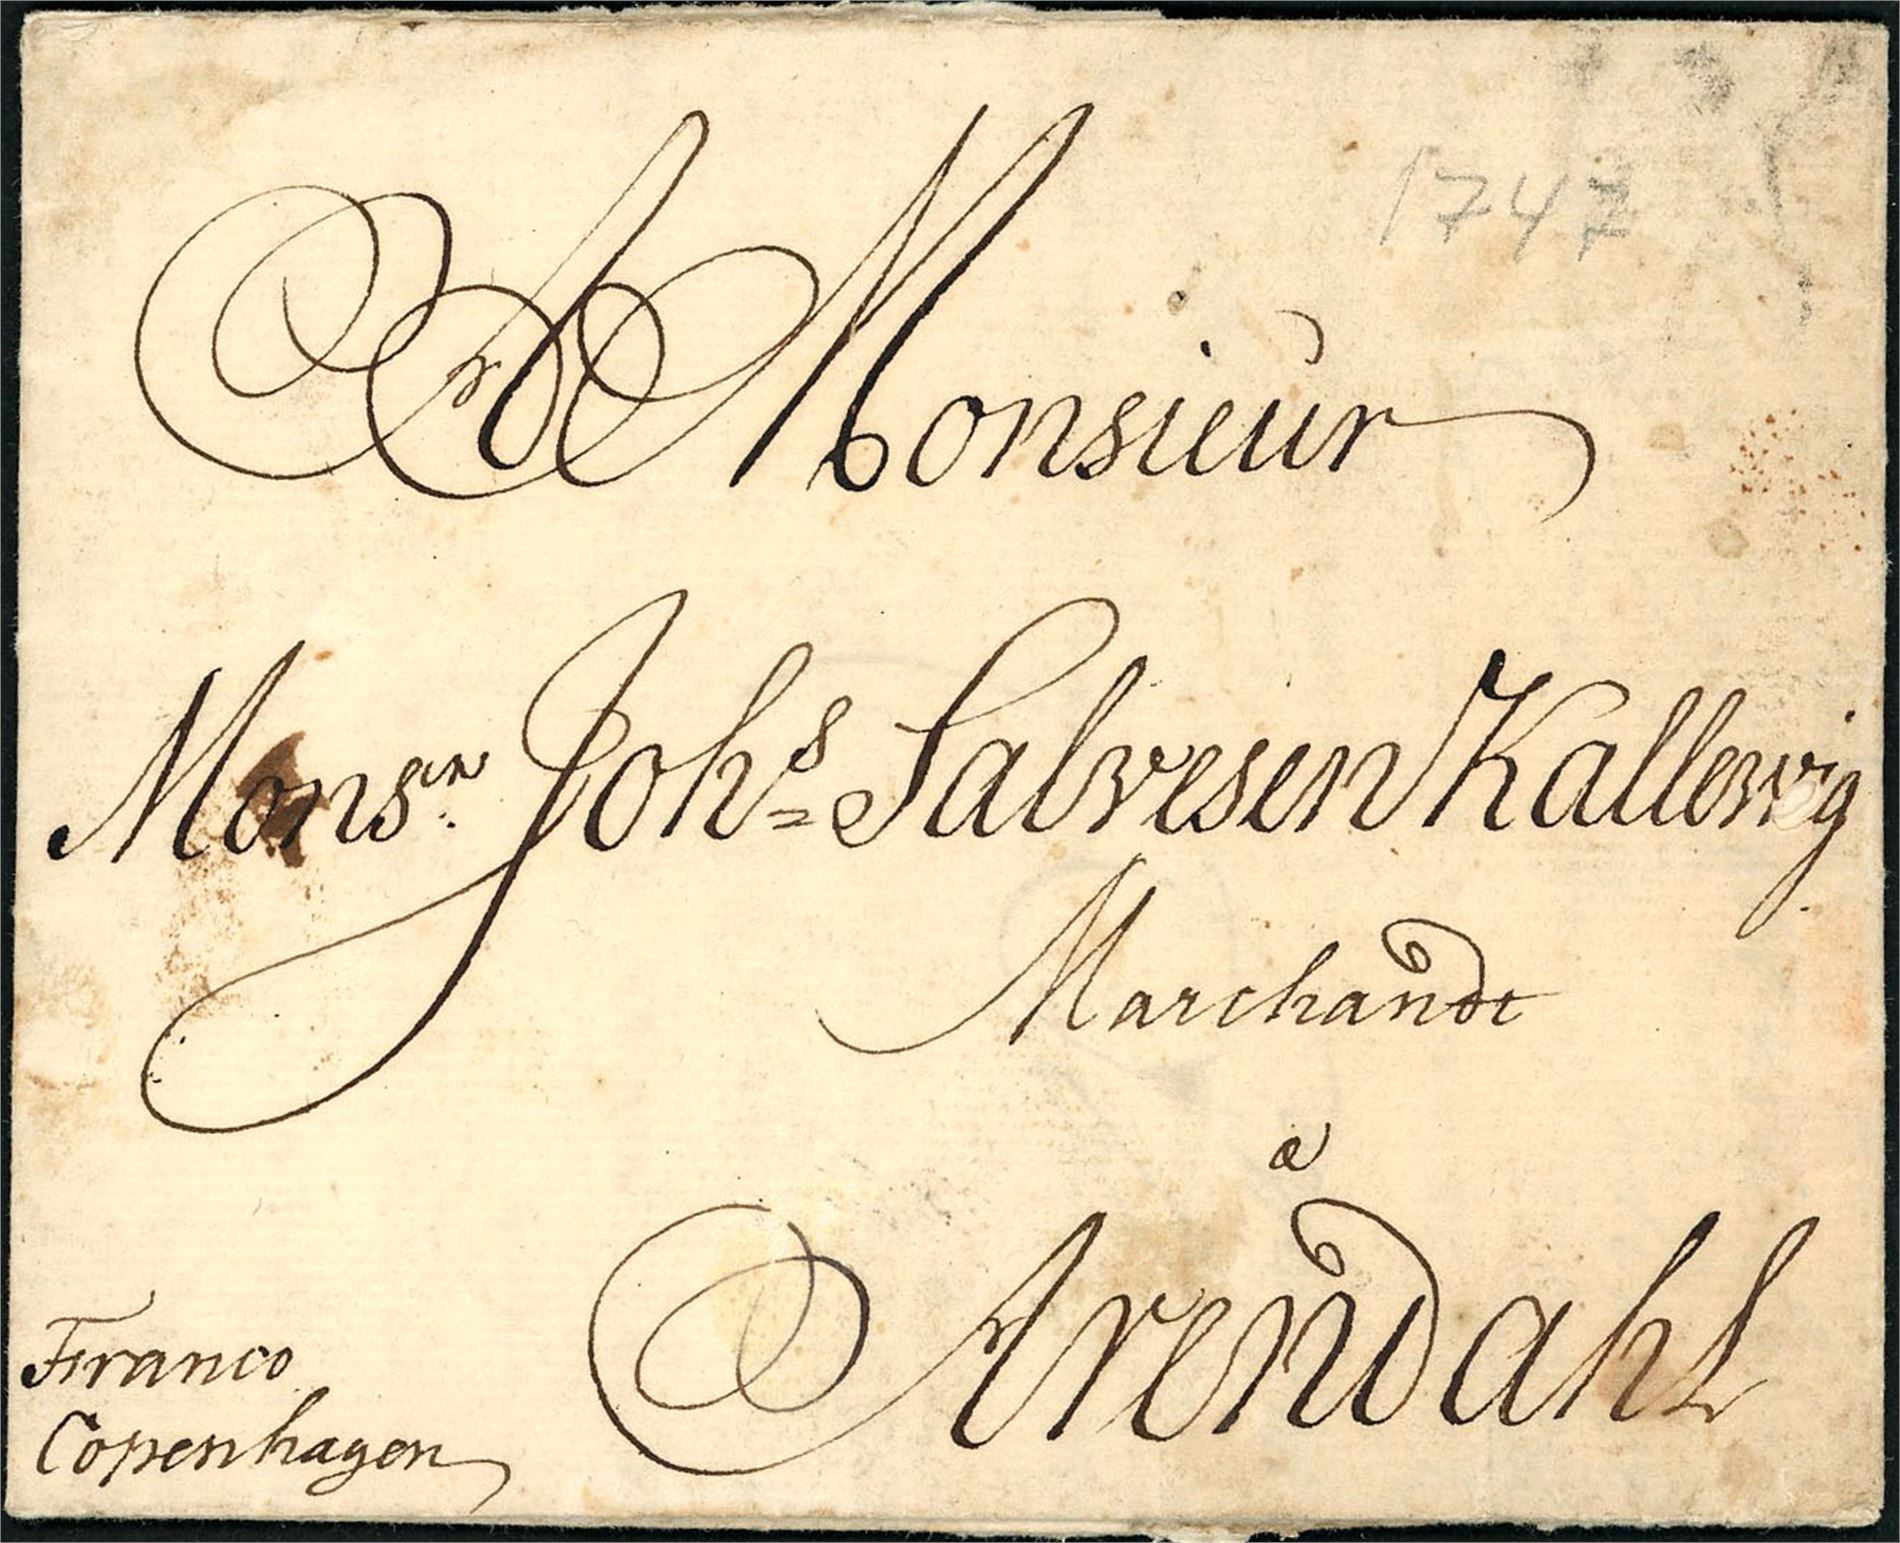 1747
A Monsieur
Monsr. Johs Salvesen Kallewig
Marchandt
a
Arendahl
Franco
Copenhagen